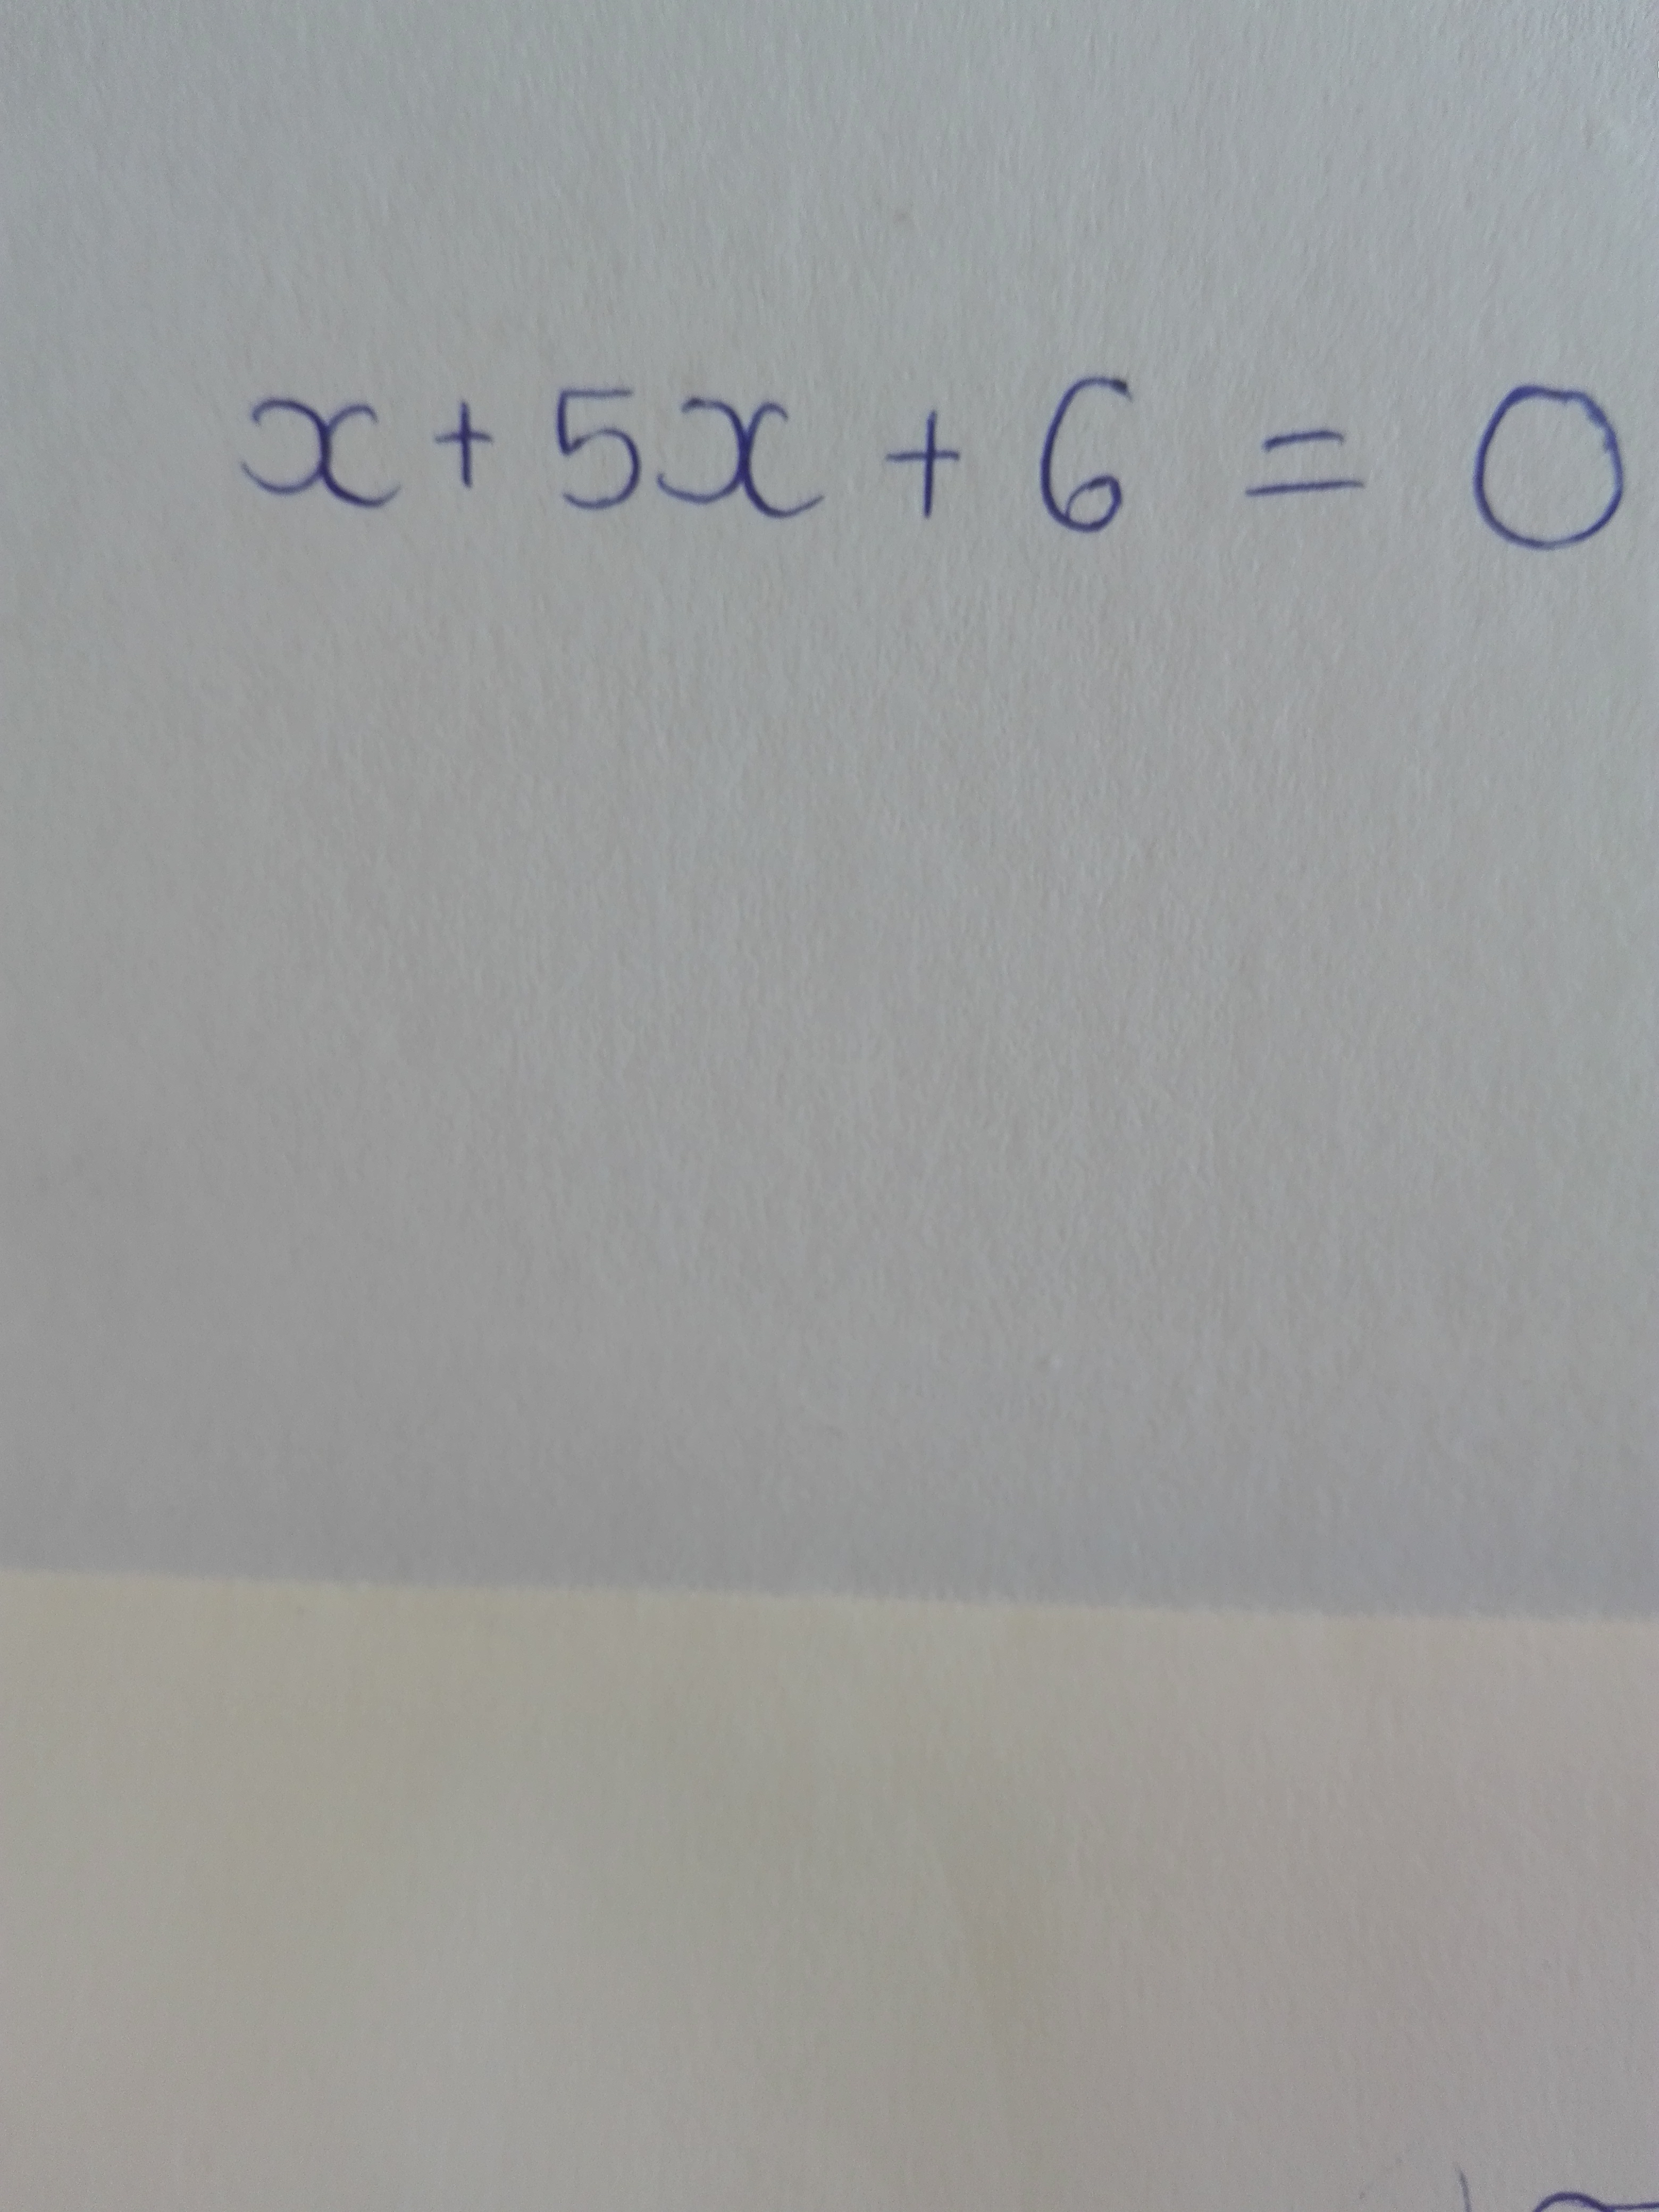 x + 5x + 6 = 0